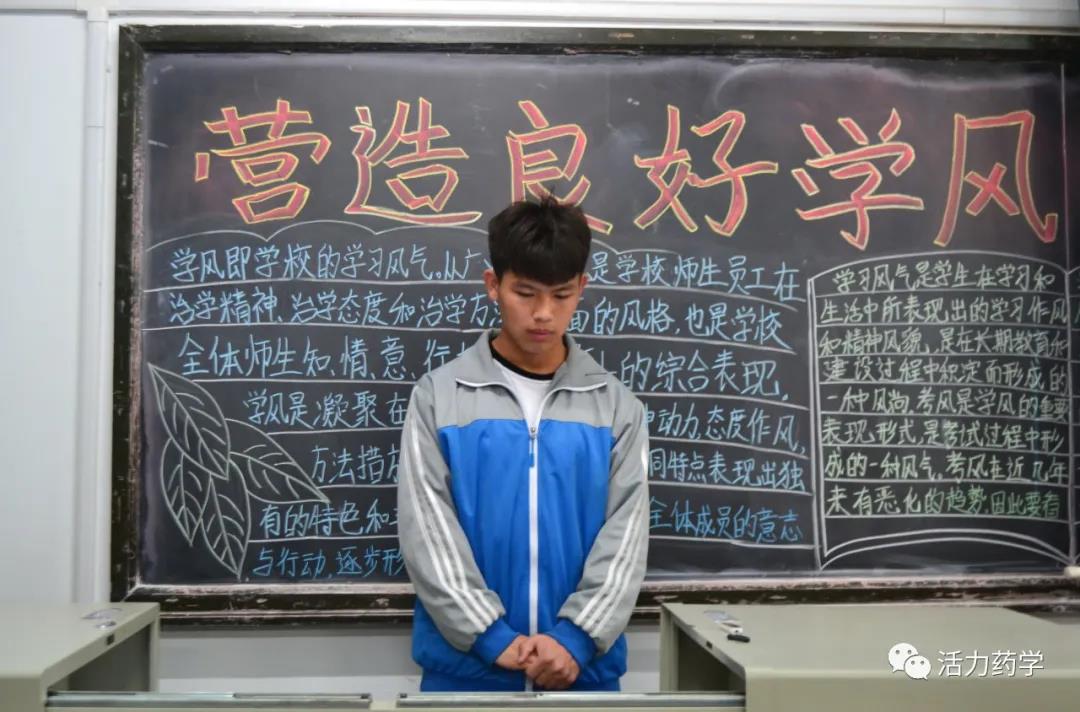 营造良好学风
学风即学校的学习风气。从广 是学校师生员工在
治学精神、治学态度和治学方 面的风格,也是学校
全体师生知、情、意、行 的综合表现,
学风是凝聚在 动力、态度作风,
方法措 同特点表现出独
有的特色和 全体成员的意志
与行动,逐步形
学习风气是学生在学习和
生活中所表现出的学习作风
和精神风貌,是在长期教育和
建设过程中积淀而形成的
一种风尚,考风是学风的重要
表现形式,是考试过程中形
成的一种风气,考风在近几年
来有恶化的趋势,因此要看
活力药学